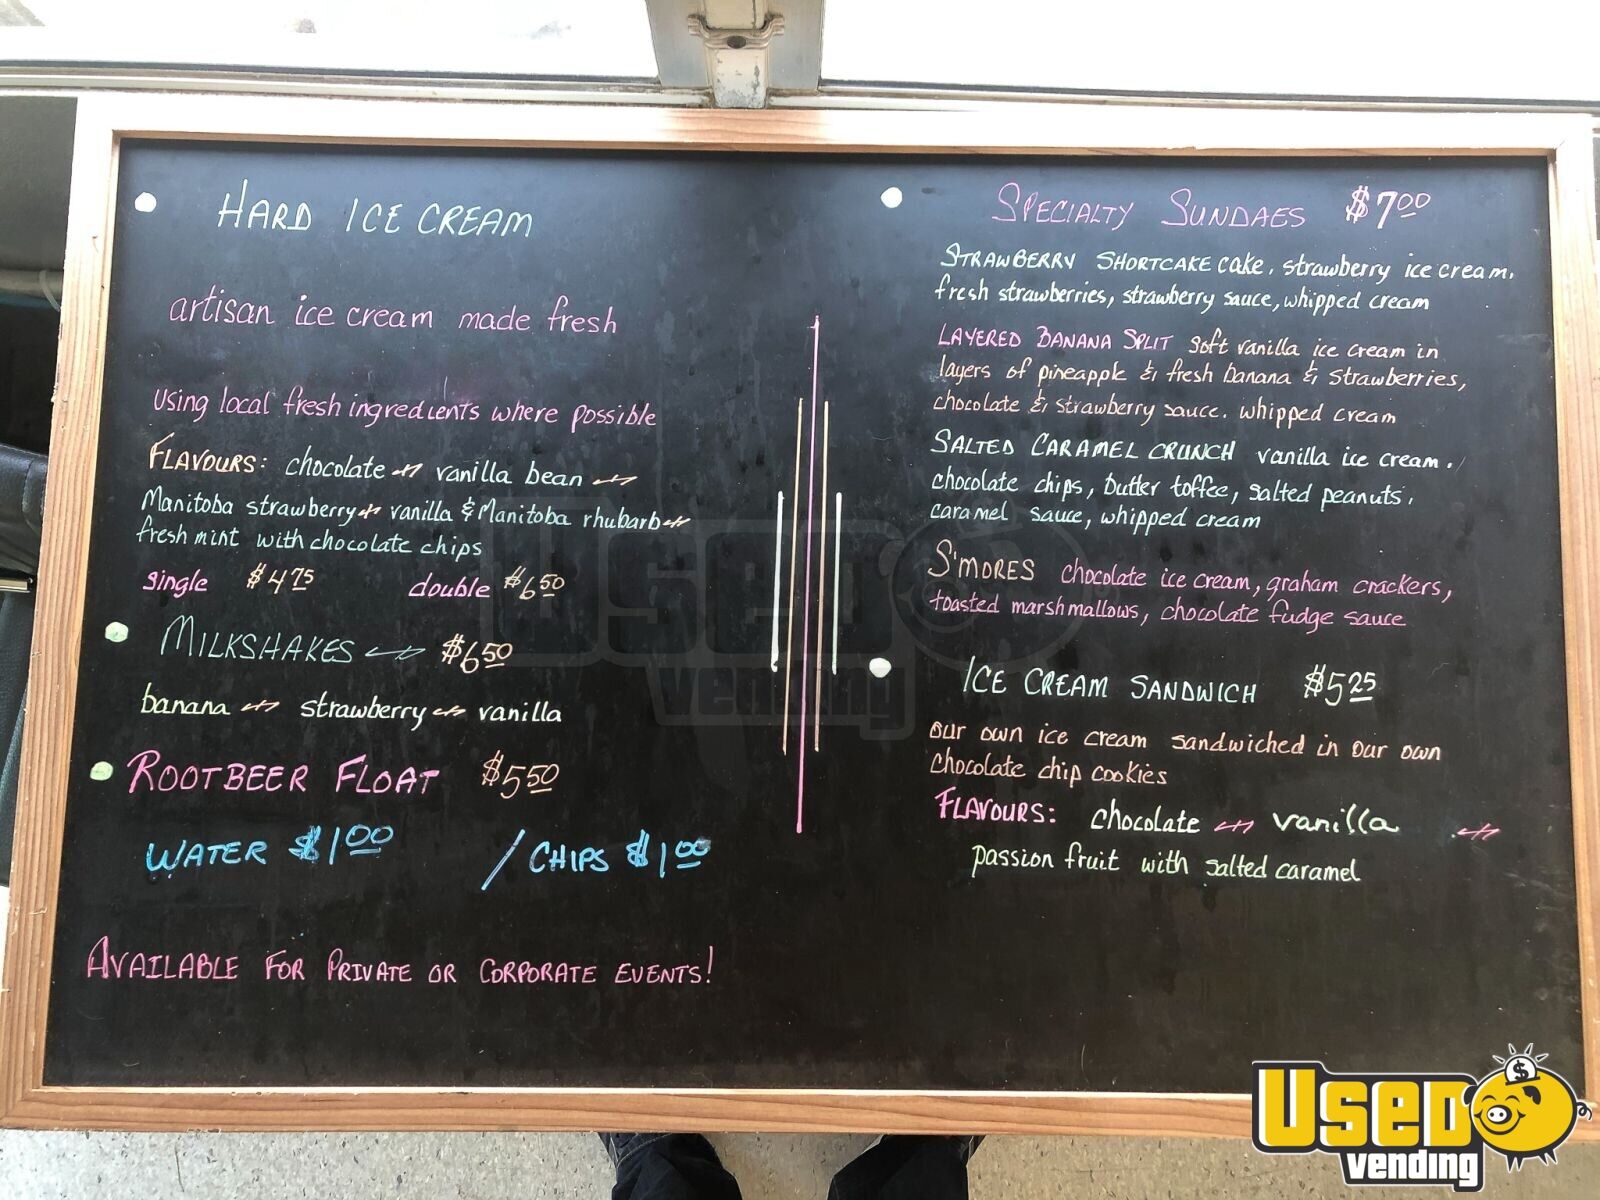 HARD ICE CREAM
artisan ice cream made fresh
using local fresh ingredients where possible
FLAVOURS: chocolate vanilla bean
Manitoba strawberry vanilla & Manitoba rhubarb
fresh mint with chocolate chips
single $4.75 double $6.50
MILKSHAKES $6.50
banana strawberry vanilla
ROOTBEER FLOAT $5.50
WATER $1.00 / CHIPS $1.00
AVAILABLE FOR PRIVATE OR CORPORATE EVENTS!
SPECIALTY SUNDAES $7.00
STRAWBERRY SHORTCAKE cake, strawberry ice cream,
fresh strawberries, strawberry sauce, whipped cream
LAYERED BANANA SPLIT soft vanilla ice cream in
layers of pineapple & fresh banana & strawberries,
chocolate & strawberry sauce, whipped cream
SALTED CARAMEL CRUNCH vanilla ice cream,
chocolate chips, butter toffee, salted peanuts,
caramel sauce, whipped cream
S'MORES chocolate ice cream, graham crackers,
toasted marshmallows, chocolate fudge sauce
ICE CREAM SANDWICH $5.25
our own ice cream sandwiched in our own
chocolate chip cookies
FLAVOURS: chocolate vanilla
passion fruit with salted caramel
USED
vending
USED
vending